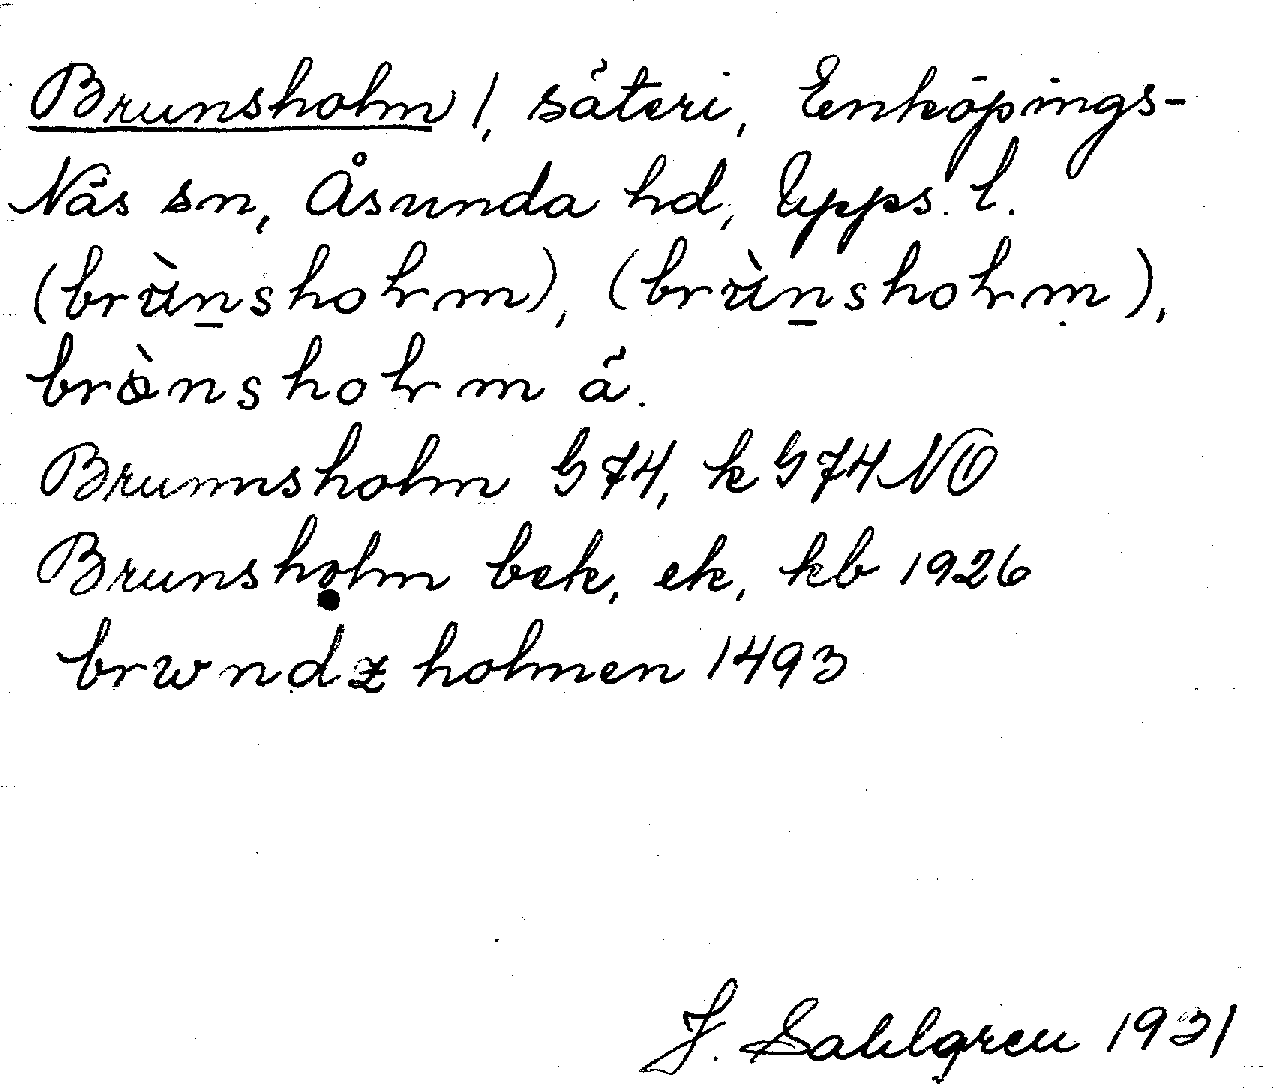 Brunsholm /, säteri, Enköpings-
Näs sn, Åsunda hd, Upps. l.
(brùnsholm), (brùnsholm),
brònsholm ä.
Brunnsholm G 74, k G 74 NO
Brunsholm bek, ek, kb 1926
brwndzholmen 1493
J. Sahlgren 1931